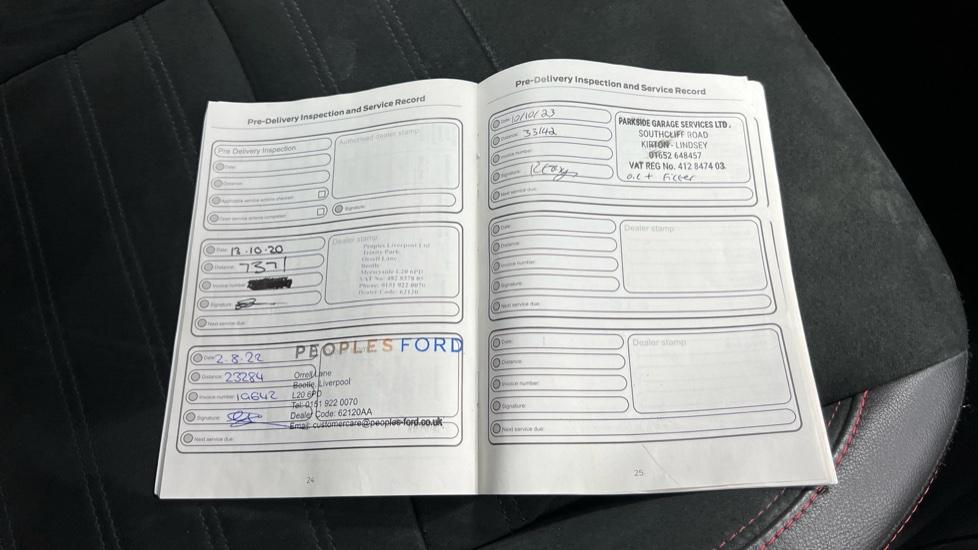 Pre-Delivery Inspection and Service Record
Pre Delivery Inspection
Authorised dealer stamp
Date:
Distance:
Applicable service actions checked:
Open service actions completed:
Signature:
Date: 13.10.20
Distance: 7371
Invoice number:
Signature:
Next service due:
Dealer stamp
Peoples Liverpool Ltd
Trinity Park
Orrell Lane
Bootle
Merseyside L20 6PD
Phone: 0151 922 0070
Dealer Code: 62120
Date: 2.8.22
Distance: 23284
Invoice number:
Signature:
Next service due:
PEOPLES FORD
Orrell Lane
Bootle, Liverpool
L20 6PD
Tel: 0151 922 0070
Dealer Code: 62120AA
Email: customercare@peoples-ford.co.uk
24
Pre-Delivery Inspection and Service Record
Date: 10/10/23
Distance: 33142
Invoice number:
Signature:
Next service due:
PARKSIDE GARAGE SERVICES LTD.
SOUTHCLIFF ROAD
KIRTON - LINDSEY
01652 648457
VAT REG No. 412 8474 03
OIL + Filter
Date:
Distance:
Invoice number:
Signature:
Next service due:
Dealer stamp
Date:
Distance:
Invoice number:
Signature:
Next service due:
Dealer stamp
25